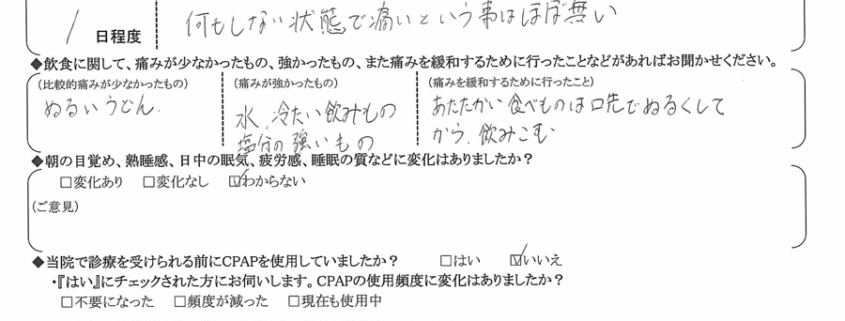 1 日程度 何もしない状態で痛いという事はほぼ無い
◆飲食に関して、痛みが少なかったもの、強かったもの、また痛みを緩和するために行ったことなどがあればお聞かせください。
(比較的痛みが少なかったもの) (痛みが強かったもの) (痛みを緩和するために行ったこと)
ぬるいうどん. 水、冷たい飲みもの あたたかい食べものは口先でぬるくして
塩分の強いもの から、飲みこむ
◆朝の目覚め、熟睡感、日中の眠気、疲労感、睡眠の質などに変化はありましたか？
□変化あり □変化なし ☑わからない
(ご意見)
◆当院で診療を受けられる前にCPAPを使用していましたか？ □はい ☑いいえ
・『はい』にチェックされた方にお伺いします。CPAPの使用頻度に変化はありましたか？
□不要になった □頻度が減った □現在も使用中